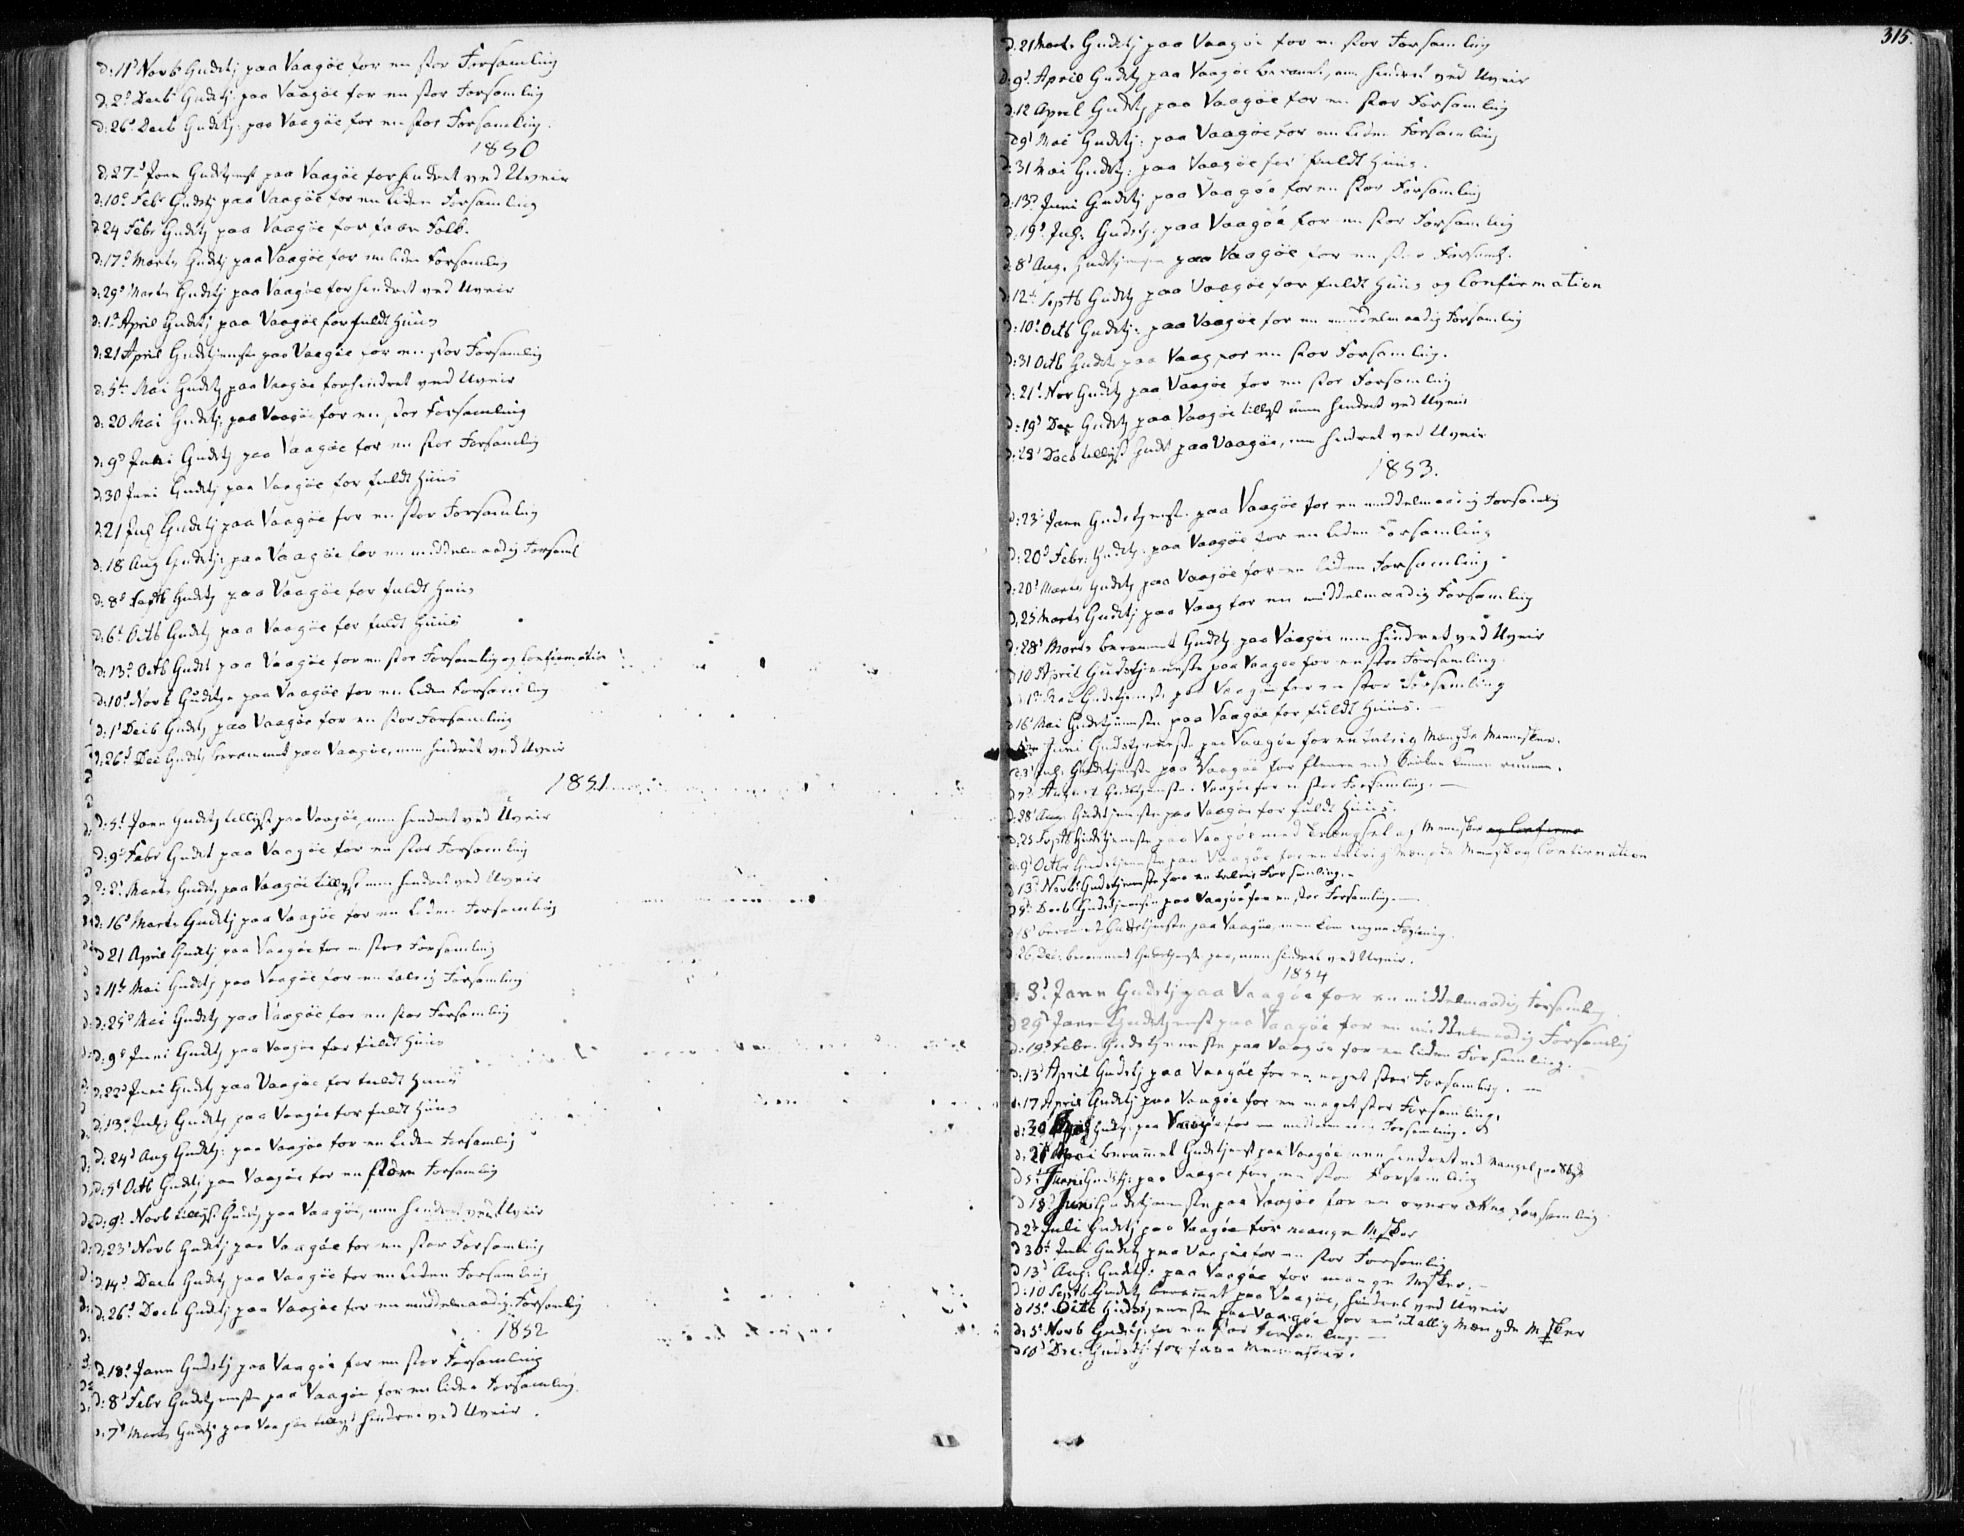 d: 11t Novb Gudstj paa Vaagöe for en stor Forsamling
d: 2d Decb Gudstj: paa Vaagöe for en stor Forsamling
d: 26d Decb Gudstj: paa Vaagöe for en stor Forsamling.
1850
d: 27d Janr Gudstjenst paa Vaagöe forhindret ved Uveir
d: 10d Febr Gudstj paa Vaagöe for en liden Forsamling
d 24 Febr Gudstj paa Vaagöe for faae Folk.
d: 17d Marts Gudstj paa Vaagöe for en liden Forsamling
d: 29d Marts Gudstj paa Vaagöe forhindret ved Uveir
d: 1d April Gudstj paa Vaagöe for fuldt Huus
d: 21 April Gudstjeneste paa Vaagöe for en stor Forsamling
d: 5te Mai Gudstj paa Vaagöe forhindret ved Uveir
d: 20 Mai Gudstj: paa Vaagöe for en stor Forsamling
d: 9d Juni Gudstj paa Vaagöe for en stor Forsamling
d: 30 Juni Gudstj paa Vaagöe for fuldt Huus
d: 21 Julj Gudstj paa Vaagöe for en stor Forsamling
d: 18 Aug Gudstj: paa Vaagöe for en middelmaadig Forsaml
d: 8d Septb Gudstj paa Vaagöe for fuldt Huus
d: 6t Octb Gudstj paa Vaagöe for fuldt Huus
d: 13d Octb Gudst paa Vaagöe for en stor Forsamling og Confirmation
d: 10d Novb Gudstje paa Vaagöe for en liden Forsamling
d: 1t Decb Gudstj paa Vaagöe for en stor Forsamling
d: 26d Dec Gudstj berammet paa Vaagöe, men hindret ved Uveir
1851
d: 5t Janr Gudstj tillyst paa Vaagöe, men hindret ved Uveir
d: 9d Febr Gudst paa Vaagöe for en stor Forsamling
d: 2d Marts Gudstj paa Vaagöe tillyst men hindret ved Uveir
d: 16d Marts Gudstj paa Vaagöe for en liden Forsamling
d 21 April Gudstj paa Vaagöe for en stor Forsamling
d 11te Mai Gudstj paa Vaagöe for en talrig Forsamling
d: 25d Mai Gudstj paa Vaagöe for en stor Forsamling
d: 9d Juni Gudstj paa Vaagöe for fuldt Huus
d: 22d Juni Gudstj paa Vaagöe for fuldt Huus
d: 13d Julj: Gudstj paa Vaagöe for fuldt Huus
d: 24d Aug Gudstj: paa Vaagöe for en liden Forsamling
d: 5t Octb Gudstj paa Vaagöe for en stor Forsamling
d: 9d Novb tillyst Gudstj paa Vaagöe, men hindret ved Uveir
d: 23d Novb Gudstj paa Vaagöe for en stor Forsamling
d: 14d Decb Gudstj paa Vaagöe for en liden Forsamling
d: 26d Decb Gudstj paa Vaagöe for en middelmaadig Forsamling
1852
d. 18d Janr Gudstj paa Vaagöe for en stor Forsamling
d: 8d Febr Gudstjeneste paa Vaagöe for en liden Forsamling
d: 7d Marts Gudstj paa Vaagöe tillyst hindret ved Uveir.
315.
d: 21 Marts Gudstj paa Vaagöe for en stor Forsamling
d: 9d April Gudstj paa Vaagöe berammet, men hindret ved Uveir
d: 12 April Gudstj paa Vaagöe for en stor Forsamling
d 9d Mai Gudstj: paa Vaagöe for en liden Forsamling
d: 31 Mai Gudstj: paa Vaagöe for fuldt Huus.
d: 13d Juni Gudstj paa Vaagöe for en stor Forsamling
d: 19d Julj: Gudstj: paa Vaagöe for en stor Forsamling
d: 8d Aug. Gudstjenesten paa Vaagöe for en stor Forsaml.
d: 12te Septb Gudstj paa Vaagöe for fuldt Huus og Confirmation
d: 10d Octb Gudstj: paa Vaagöe for en middelmaadig Forsamling
d: 31 Octb Gudst paa Vaag for en stor Forsamling.
d: 21d Nov Gudstj paa Vaagöe for en stor Forsamling
d: 19d Dec Gudstj paa Vaagöe tillyst men hindret ved Uveir
d: 28d Decb tillyst Gudst paa Vaagöe, men hindret ved Uveir
1853.
d: 23d Janr Gudstjeneste paa Vaagöe for en middelmaadig Forsamling
d: 20d Febr: Gudstj: paa Vaagöe for en liden Forsamling
d: 20d Marts Gudstj paa Vaagöe for en liden Forsamling
d. 25 Marts Gudstj paa Vaag for en middelmaadig Forsamling
d: 28d Marts berammet Gudstj paa Vaagöe men hindret ved Uveir
d 10 April Gudstjeneste paa Vaagöe for en stor Forsamling.
1te Mai Gudstjeneste paa Vaagöe for en stor Forsamling
d 16d Mai Gudstjeneste paa Vaagöe for fuldt Huus.
Juni Gudstjeneste paa Vaagöe for en talrig Mængde Mennesker.
d. 3d Julj: Gudstjeneste paa Vaagöe for flere end Kirken kunne rumme.
d 7d August Gudstjeneste Vaagöe for en stor Forsamling.
d: 28d Aug Gudstjeneste paa Vaagöe for fuldt Huus.
d. 25 Septb Gudstjeneste paa Vaagöe med Trængsel af Mennesker og Confirma
d. 9d Octbr Gudstjeneste paa Vaagöe for en talrig Mængde Mennesk og Confirmation
d 13d Novb: Gudstjeneste for en talrig Forsamling.
d 5te Decb Gudstjenesten paa Vaagöe for en stor Forsamling.
d 18d berammet Gudstjeneste paa Vaagöe, men kom ingen
d 26 Dec: berammet Gudstjeneste paa, men hindret ved Uveir.
1854
d: 3d Janr Gudstj paa Vaagöe for en middelmaadig Forsamling
d 29d Janr Gudstjenest paa Vaagöe for en middelmaadig Forsamling
d: 19d Febr. Gudstjeneste paa Vaagöe for en liden Forsamling.
d: 13d April Gudstj paa Vaagöe for en noget stor Forsamling.
d: 17 April Gudstj paa Vaagöe for en meget stor Forsamling.
d: 30 April Gudstj: paa Vaagöe for en middelmaadig Forsamling.
d: 21 Mai berammet Gudstjenest paa Vaagöe men hindret ved Mangel paa Skyds
d 5t Juni Gudstj: paa Vaagöe for en stor Forsamling
d 18d Juni Gudstjenesten paa Vaagöe for en overordtlig Forsamling
d 2d Juli Gudstj paa Vaagöe for mange Msker
d 30t Juli Gudstj paa Vaagöe for en stor Forsamling
d 13d Aug: Gudstj: paa Vaagöe for mange Msker.
d: 10 Septb Gudstj berammet paa Vaagöe, hindret ved Uveir
d 15d Octb Gudstjeneste paa Vaagöe for en utallig Mængde Msker
d: 5t Novb Gudstj: for en stor Forsamling.
d 10d Dec: Gudstj: for faae Mennesker.